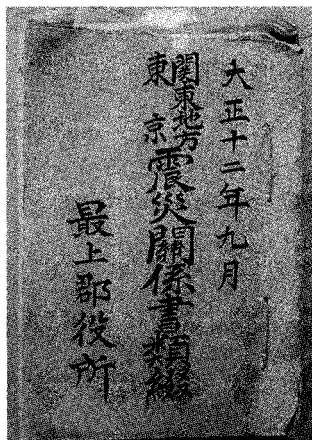 大正十二年九月
関東地方
東京
震災關係書類綴
最上郡役所